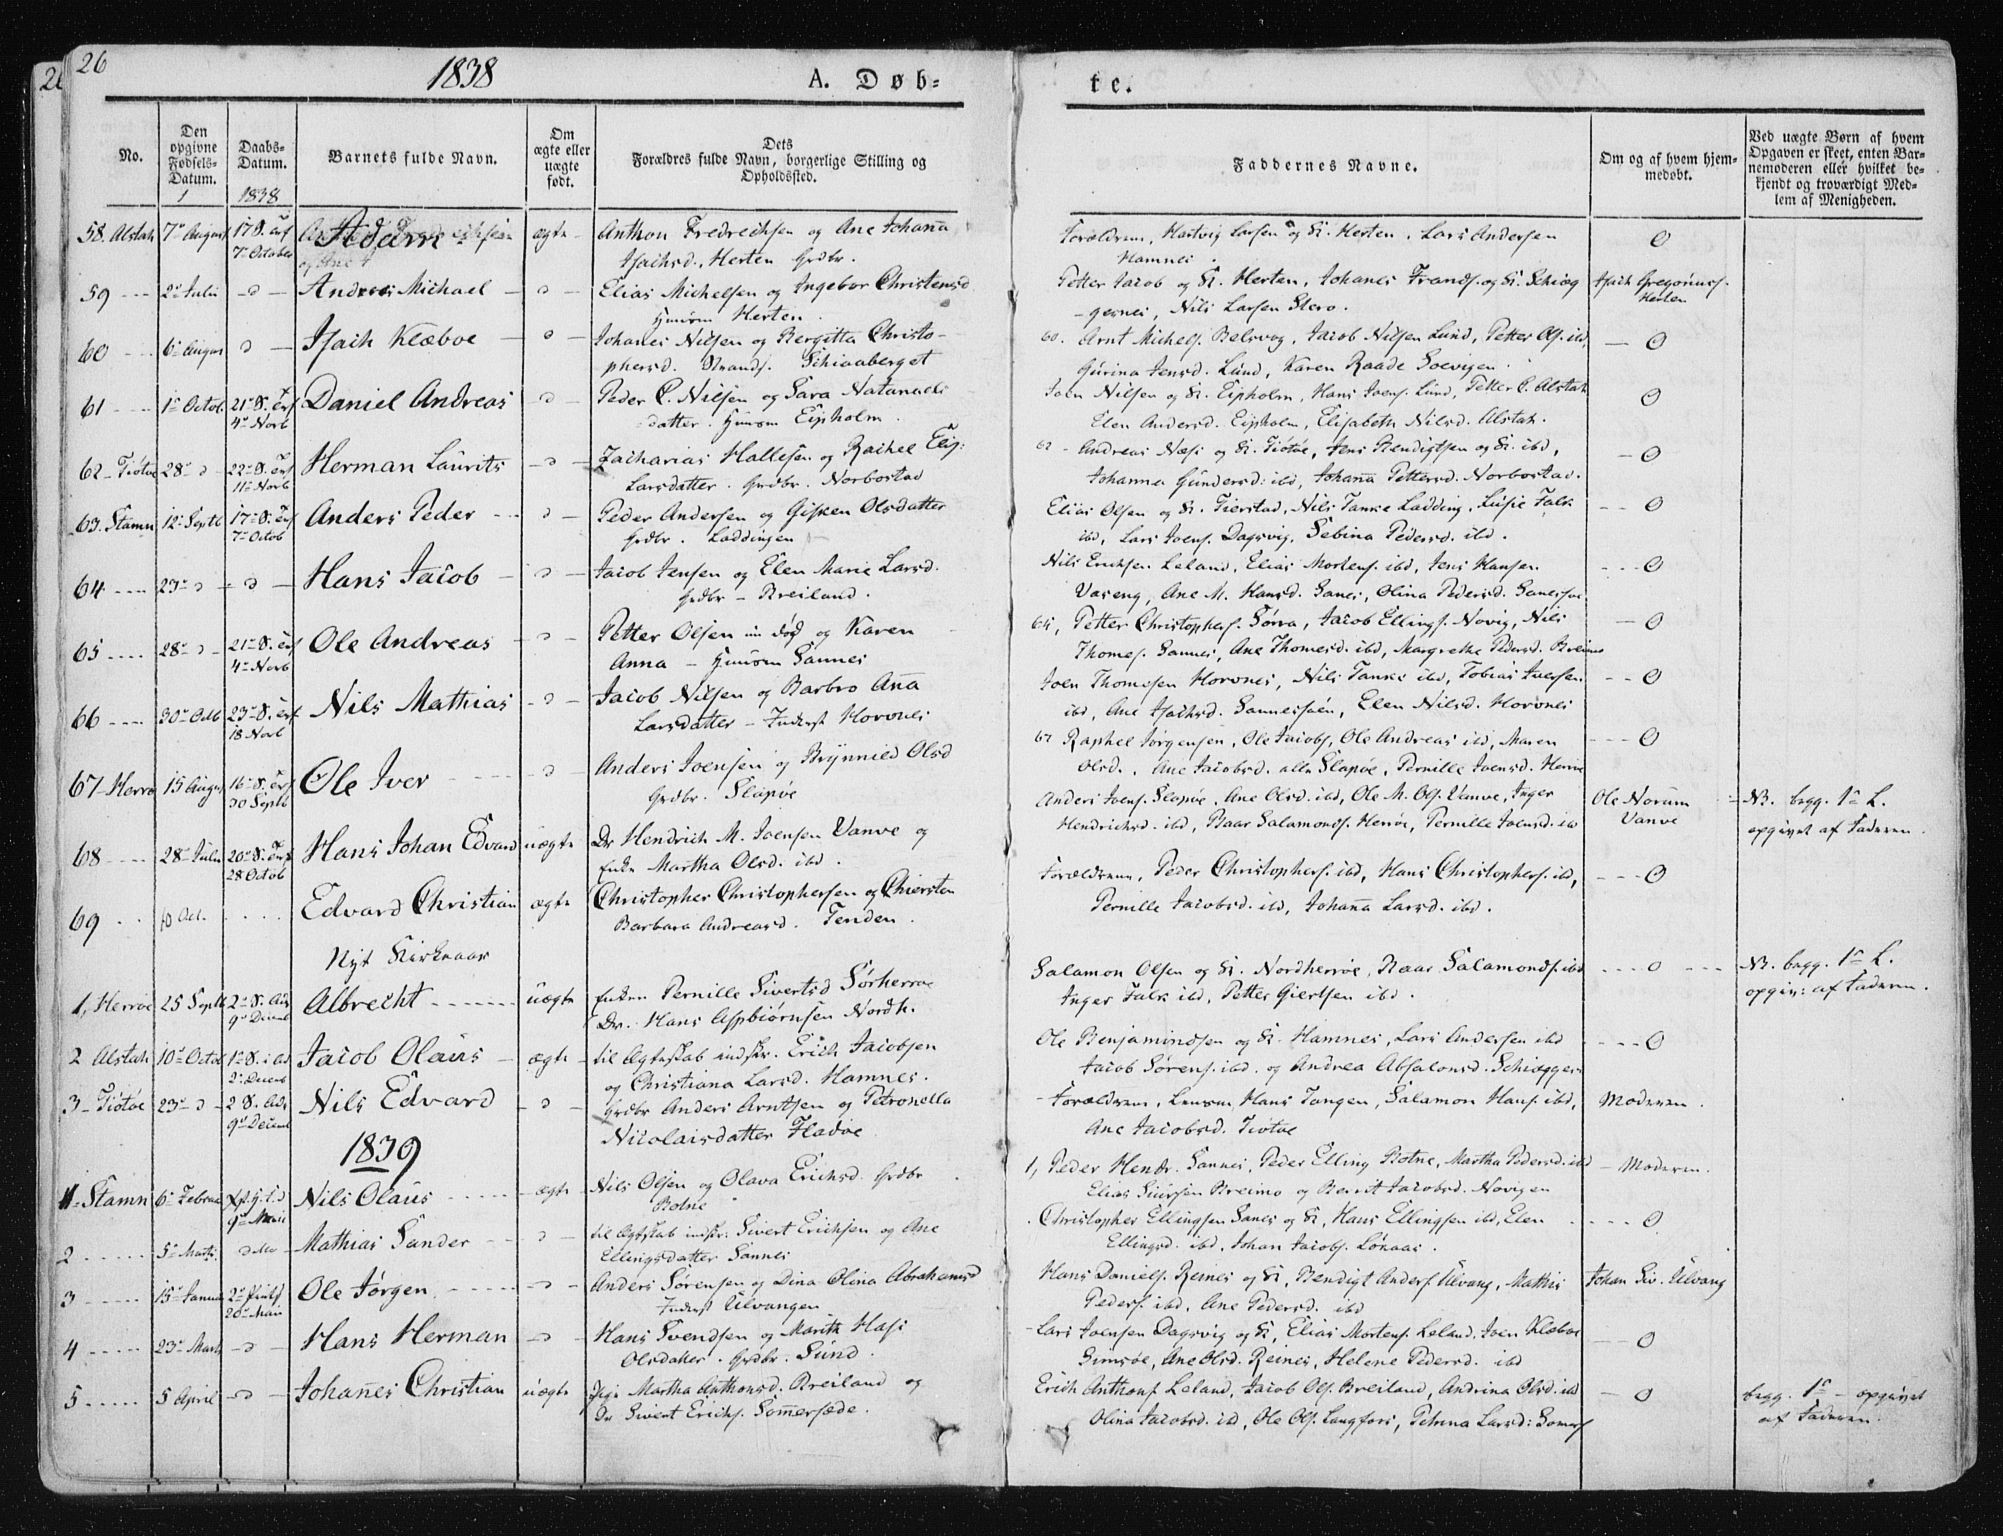 26
1838
A. Døb-
te.
No.
Den opgivne Fødsels-Datum.
Daabs-Datum.
1838
Barnets fulde Navn.
Om ægte eller uægte født.
Dets Forældres fulde Navn, borgerlige Stilling og Opholdssted.
Faddernes Navne.
Om og af hvem hjemmedøbt.
Ved uægte Børn af hvem Opgaven er skeet, enten Barnemoderen eller hvilket bekjendt og troværdigt Medlem af Menigheden.
58. Alstah 7de August 7de October Adam ægte Anthon Fredrechsen og Ane Johanna
Isachsd. Herten Grdbr.
Forældrene, Hartvig Larsen og K. Herten, Lars Andersen
Hamnes
59 2den Julii Andreas Michael Elias Michelsen og Ingebor Christensd
Huusm Herten
Petter Jacob og K. Herten, Johanes
Nils Larsen
Isach Gregoriuss.
Herten
60 6te August Isach Klæboe Johanes Nilsen og Bergitta Christo-
phersd. Strands. Schiaaberget
60. Arnt Michels. Belsvog, Jacob Nilsen Lund, Petter Ols. ibd.
Gurina Jensd. Lund, Karen Raade Soevigen
0
61 1ste Octob. 4de Novb Daniel Andreas Peder C. Nilsen og Sara Natanaels
datter. Huusm Eipholm
Joen Nilsen og K. Eipholm, Hans Joens. Lund, Petter C. Alstah
Elen Andersd. Eipholm, Elisabeth Nilsd. Alstah.
0
62 Tiøtøe 28de 11te Novb Herman Laurits Zacharias Hallesen og Rachel Elis:
Larsdatter. Grdbr. Norbostad
62 Andreas Næss og K. Tiøtøe, Jens Bendigtsen og K. ibd,
Johanna Gundersd: ibd, Johana Pettersd. Norbostad.
0
63. Stamn 12te Septb 7de Octob Anders Peder Peder Andersen og Gisken Olsdatter
Grdbr. Laddingen
Elias Olsen og K. Tierstad, Nils Tanke Ladding, Lusie Falk
ibd, Lars Joens. Dagsvig, Sebina Pedersd. ibd.
0
64 23de Hans Jacob Jacob Jensen og Elen Marie Larsd.
Grdbr Breiland.
Nils Erichsen Leland, Elias Mortens. ibd, Jens Hansen
Vaseng, Ane M. Hansd. Sanes, Olina Pedersd.
0
65 28de 4de Novb Ole Andreas Petter Olsen nu død og Karen
Anna Huusm Sannes
65, Petter Christophers. Sørra, Jacob Ellings. Novig, Nils
Thomes. Sannes, Ane Thomesd. ibd, Margrethe Pedersd. Breimo
0
66 18 Novb Nils Mathias Jacob Nilsen og Barbro Ana
Larsdatter Inderst Hovones
Joen Thomesen Hovones, Nils Tanke ibd, Tobias Iversen
ibd, Ane Isachsd. Sannessøen, Elen Nilsd. Hovones
0
67 Herrø 15 August 30 Septb Ole Iver Anders Joensen og Brynnild Olsd
Grdbr. Slapøe
67 Raphel Jørgensen, Ole Jacobs, Ole Andreas ibd, Maren
Olsd., Ane Jacobsd. alle Slapøe, Pernille Joensd. Herrøe
0
68 28de Julii 28 Octob Hans Johan Edvard uægte Dr. Hendrich M. Joensen Vanve og
Enke Martha Olsd. ibd.
Anders Joens. Slapøe, Ane Olsd. ibd, Ole M. Ols. Vanve, Inger
Hendrichsd. ibd, Baar Salamons. Herrøe, Pernille Joensd. ibd
Ole Norum
Vanve
NB. begg. 1ste L.
opgivet af Faderen.
69 10 Oct. Edvard Christian ægte Christopher Christophersen og Chiersten
Barbara Andreasd. Tenden.
Forældrene, Peder Christophers. ibd, Hans Christophers. ibd,
Pernille Jacobsd. ibd, Johana Larsd. ibd.
0
Nyt Kirkeaar
1, Herrøe 25 Septb 9de Decemb Albrecht uægte Enken Pernille Sivertsd Sørherrøe
Dr. Hans Assbiørnsen Nordh.
Salamon Olsen og K. Nordherrøe, Baar Salamons. ibd
Inger Falk ibd, Petter Giertsen ibd.
0
NB. begg. 1ste L.
opgiv: af Faderen.
2 Alstah 10de Octob 2den Decemb Jacob Olaus ægte til Ægteskab indskr. Erich Jacobsen
og Christiana Larsd. Hamnes.
Ole Benjaminsen og K. Hamnes, Lars Andersen ibd
Jacob Sørens. ibd. og Andrea Absalonsd.
0
3 Tiøtøe 23de 9de Decemb Nils Edvard Grdbr Anders Arntsen og Petronella
Nicolaisdatter Fladøe
Forældrene, Hans Tangen, Salamon Hans. ibd,
Ane Jacobsd. Tiøtøe
Moderen.
1839
1 Stamn 6te Februar Nils Olaus ægte Nils Olsen og Olava Erichsd. Grdbr
Botne
1, Peder Hendr. Sannes, Peder Elling Botne, Martha Pedersd. ibd
Elias Siursen Breimo og Berrit Jacobsd. Novigen
Moderen.
2 5te Marts Mathias Sander til Ægtskab indskr. Sivert Erichsen og Ane
Ellingsdatter Sannes
Christopher Ellingsen Sanes og K, Hans Ellingsen ibd, Elen
Ellingsd. ibd, Johan Jacobs. Lønaas.
0
3 15de Januar 20de Mai Ole Jørgen Anders Sørensen og Dina Olina Abrahamsd
Inderst Ulvangen
Hans Daniels. Reines og K, Bendigt Anders. Ulvang, Mathis
Peders. ibd, Ane Pedersd. ibd
Johan Siv. Ulvang
4 23de Marts Hans Herman Hans Svendsen og Marith Hass
Olsdatter. Grdbr. Sund.
Lars Joensen Dagsvig og K, Elias Mortens. Leland, Joen Klæboe
Simsøe, Ane Olsd. Reines, Helene Pedersd. ibd
0
5 5 April Johanes Christian uægte Pige Martha Anthonsd. Breiland og
Dr Sivert Erichs. Sommersæde.
Erich Anthons Leland, Jacob Ols. Breiland, Andrina Olsd. ibd
Olina Jacobsd. ibd, Ole Ols. Langfors, Petrina Larsd:
0
begg. 1ste opgivet
af Faderen.